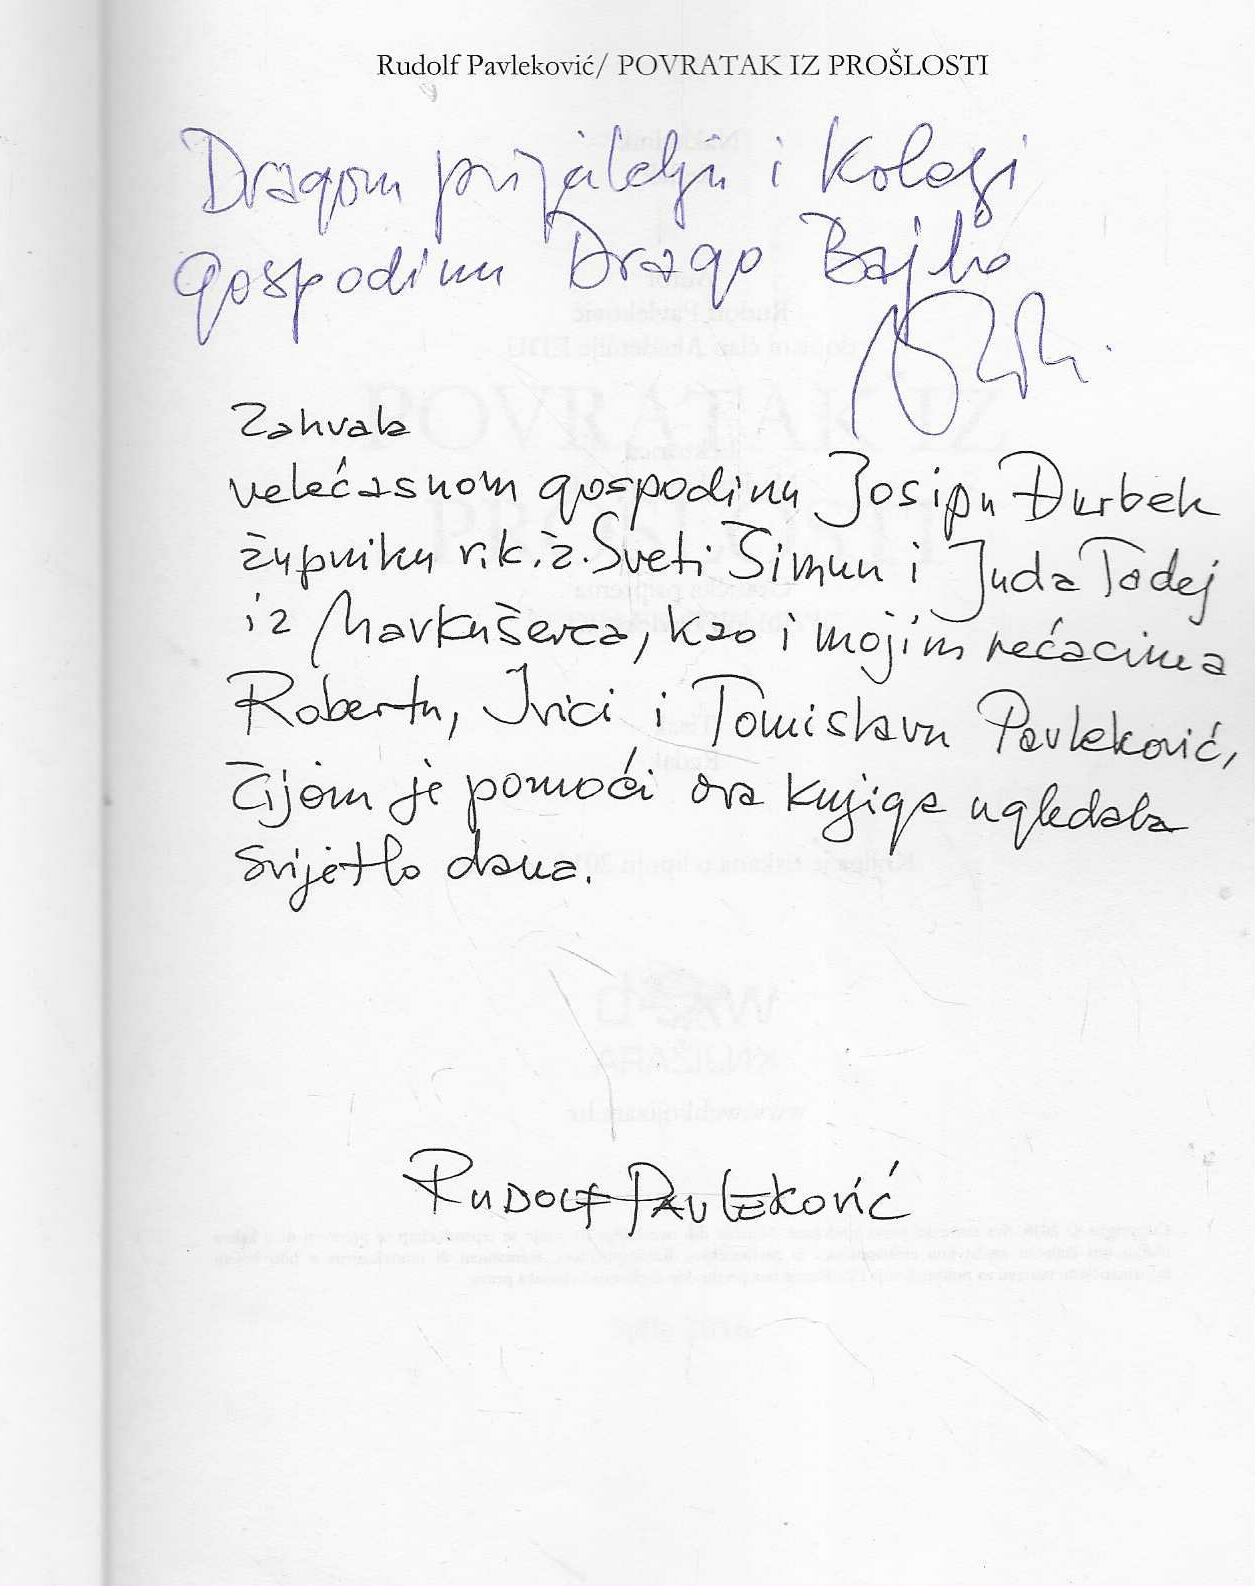 Rudolf Pavleković/ POVRATAK IZ PROŠLOSTI
Dragom prijatelju i kolegi
gospodinu Drago Bajlo
Zahvala
velećasnom gospodinu Josipu Đurbek
župniku r.k.ž. Sveti Šimun i Juda Tadej
iz Markuševca, kao i mojim nećacima
Robertu, Ivici i Tomislavu Pavleković,
čijom je pomoći ova knjiga ugledala
svijetlo dana.
RUDOLF PAVLEković